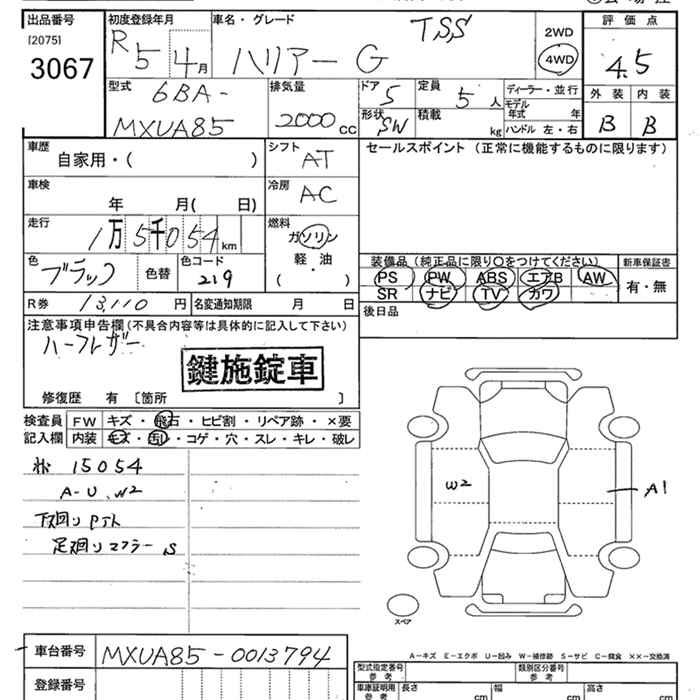 出品番号 初度登録年月 車名・グレード 評価点
[2075] R5 4月 ハリアー G TSS 2WD 4WD 4.5
3067
型式 6BA-MXUA85 排気量 2000cc ドア 5 定員 5人 ディーラー・並行 外装 内装
形状 SW 積載 kg モデル年式 年 ハンドル 左・右 B B
車歴 自家用・( ) シフト AT セールスポイント (正常に機能するものに限ります)
車検 年 月( 日) 冷房 AC
走行 1万5千054km 燃料 ガソリン 軽・油 ( )
色 ブラック 色替 色コード 219
装備品 (純正品に限り○をつけてください) 新車保証書
PS PW ABS エアB AW 有・無
SR ナビ TV カワ
R券 13,110円 名変通知期限 月 日 後日品
注意事項申告欄(不具合内容等は具体的に記入して下さい)
ハーフレザー
鍵施錠車
修復歴 有 〔箇所 〕
検査員 FW キズ・飛石・ヒビ割・リペア跡・×要
記入欄 内装 キズ・汚レ・コゲ・穴・スレ・キレ・破レ
15054
A-U、W2
下廻り
足廻りマフラーS
W2
A1
スペア
A-キズ E-エクボ U-凹み W-補修跡 S-サビ C-腐食 XX-交換済
車台番号 MXUA85-0013794
登録番号
型式指定番号 参考 類別区分番号 参考
車庫証明用 参考 長さ cm 幅 cm 高さ cm